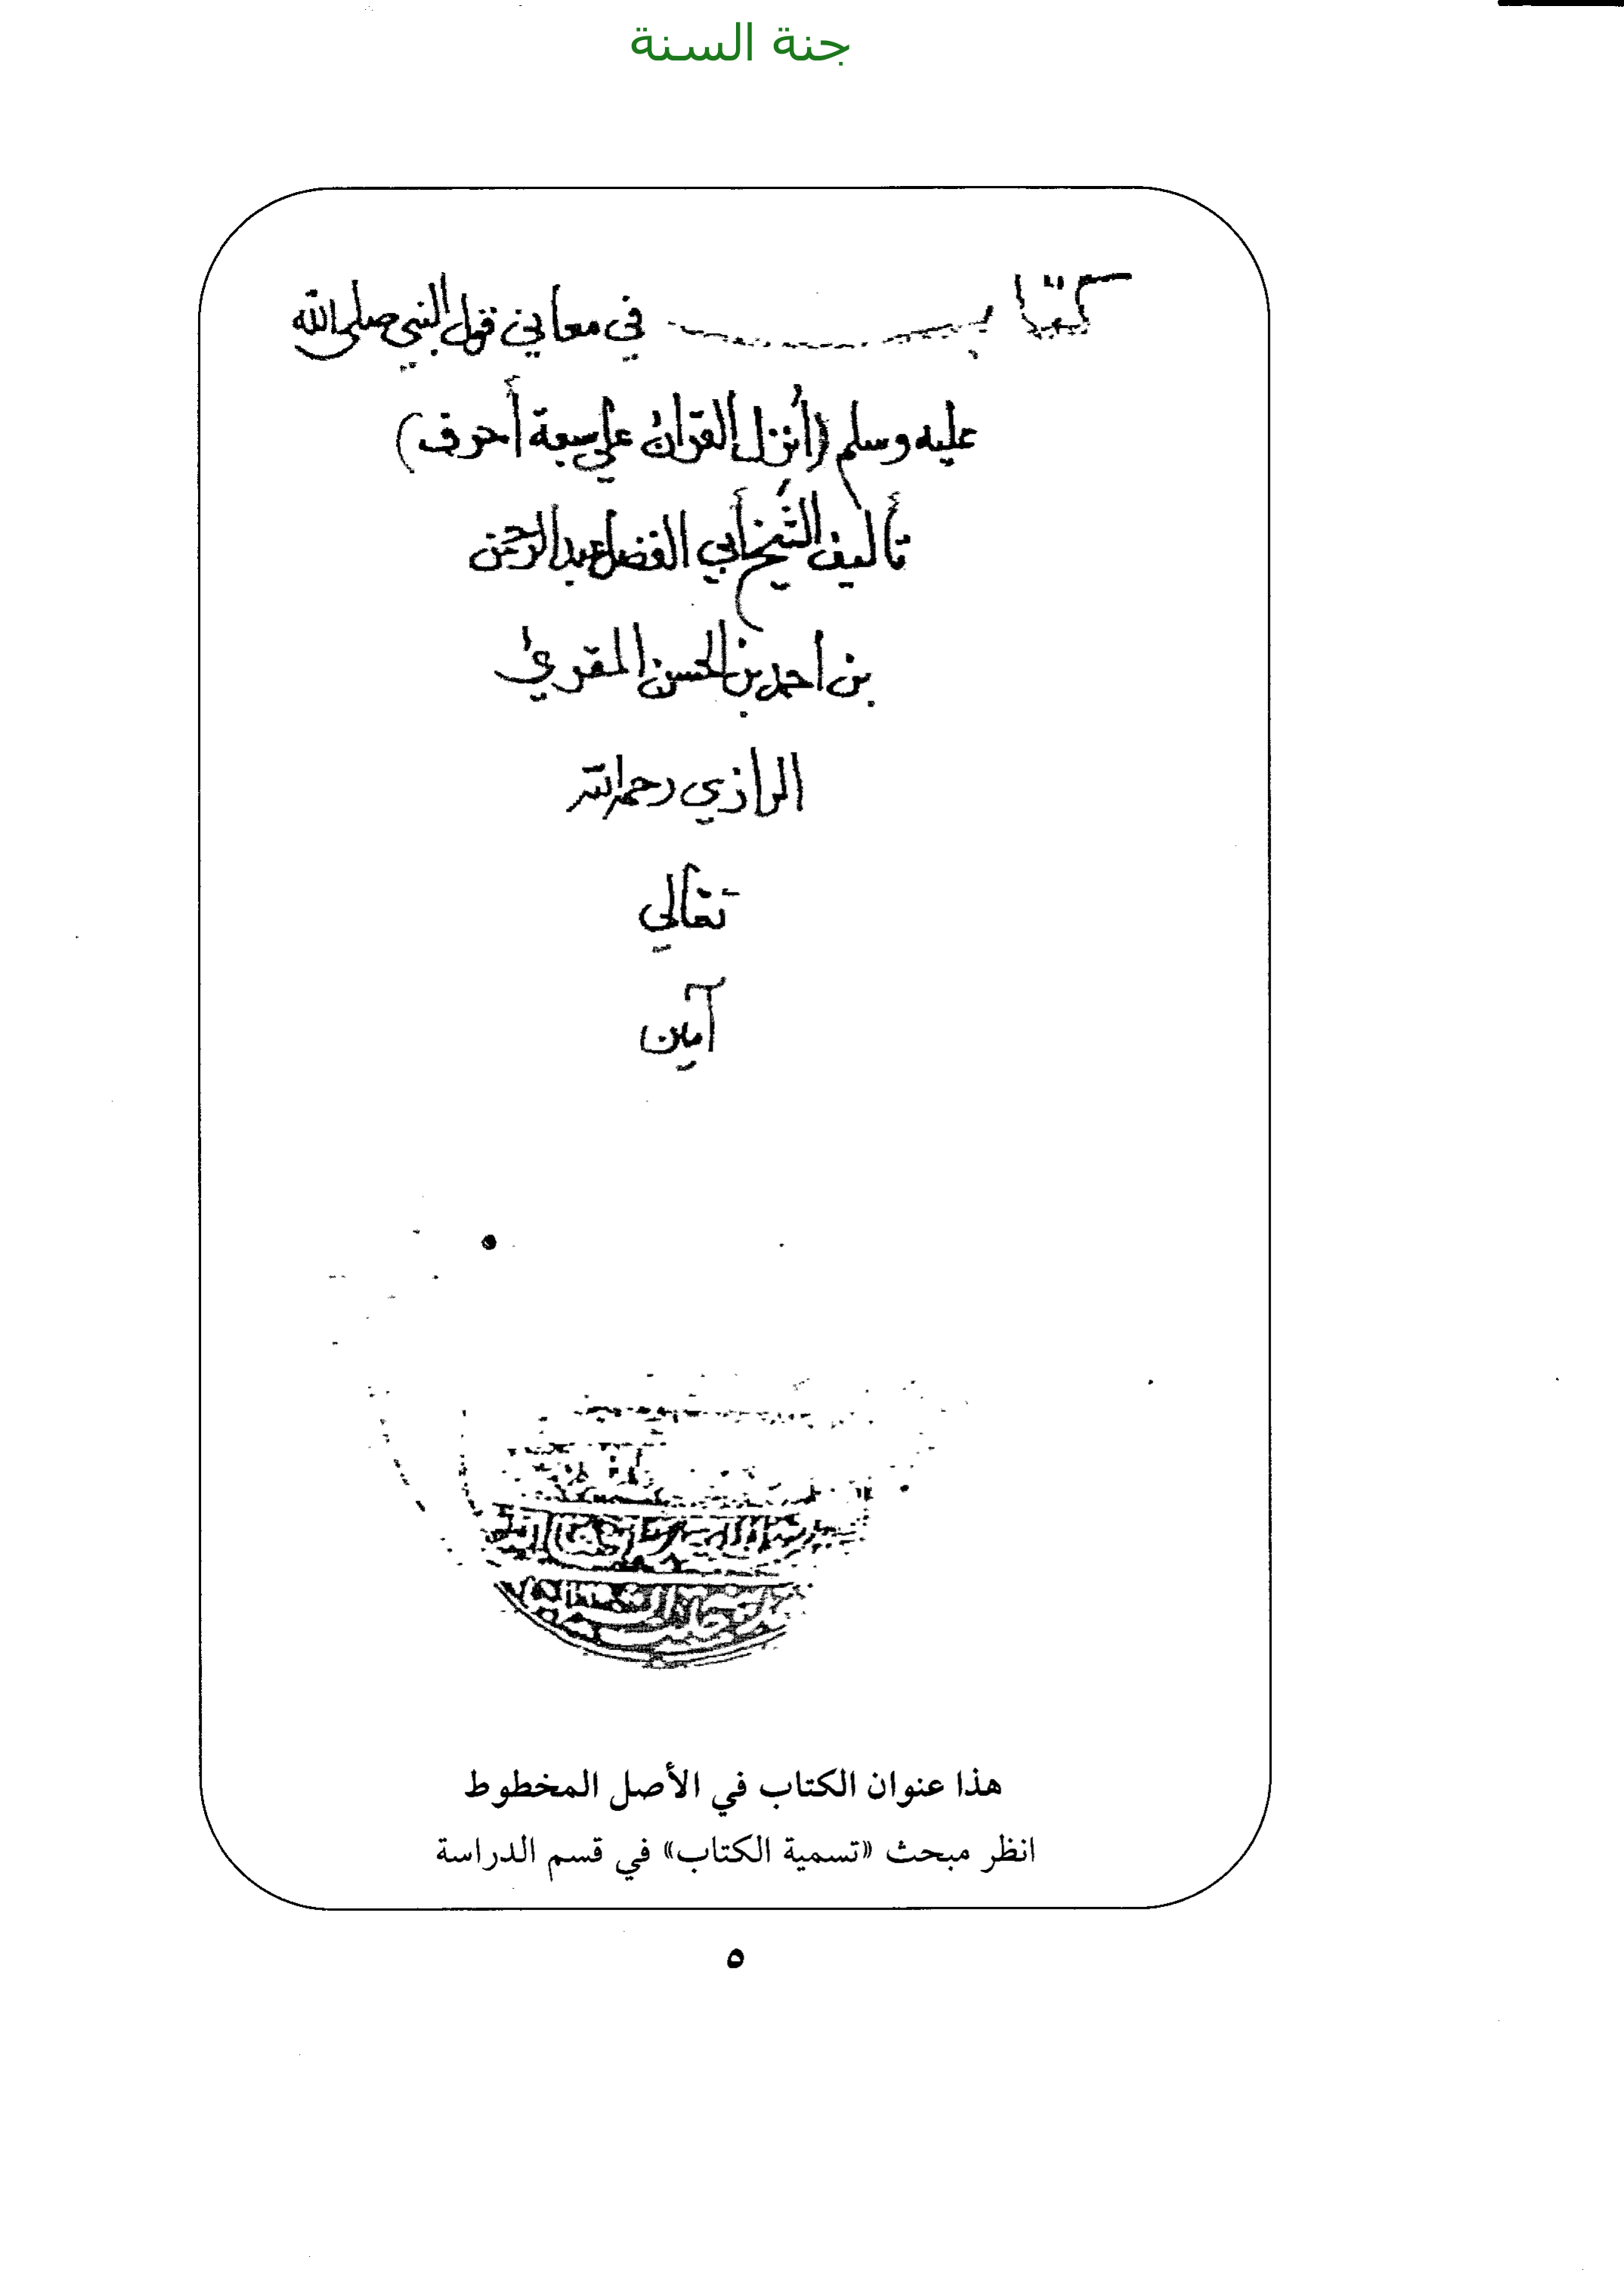 جنة السنة
كتاب في معاني قول النبي صلى الله
عليه وسلم (أنزل القرآن على سبعة أحرف)
تأليف الشيخ أبي الفضل عبد الرحمن
بن احمد بن الحسن المقرئ
الرازي رحمه الله
تعالي
آمين
هذا عنوان الكتاب في الأصل المخطوط
انظر مبحث «تسمية الكتاب» في قسم الدراسة
٥